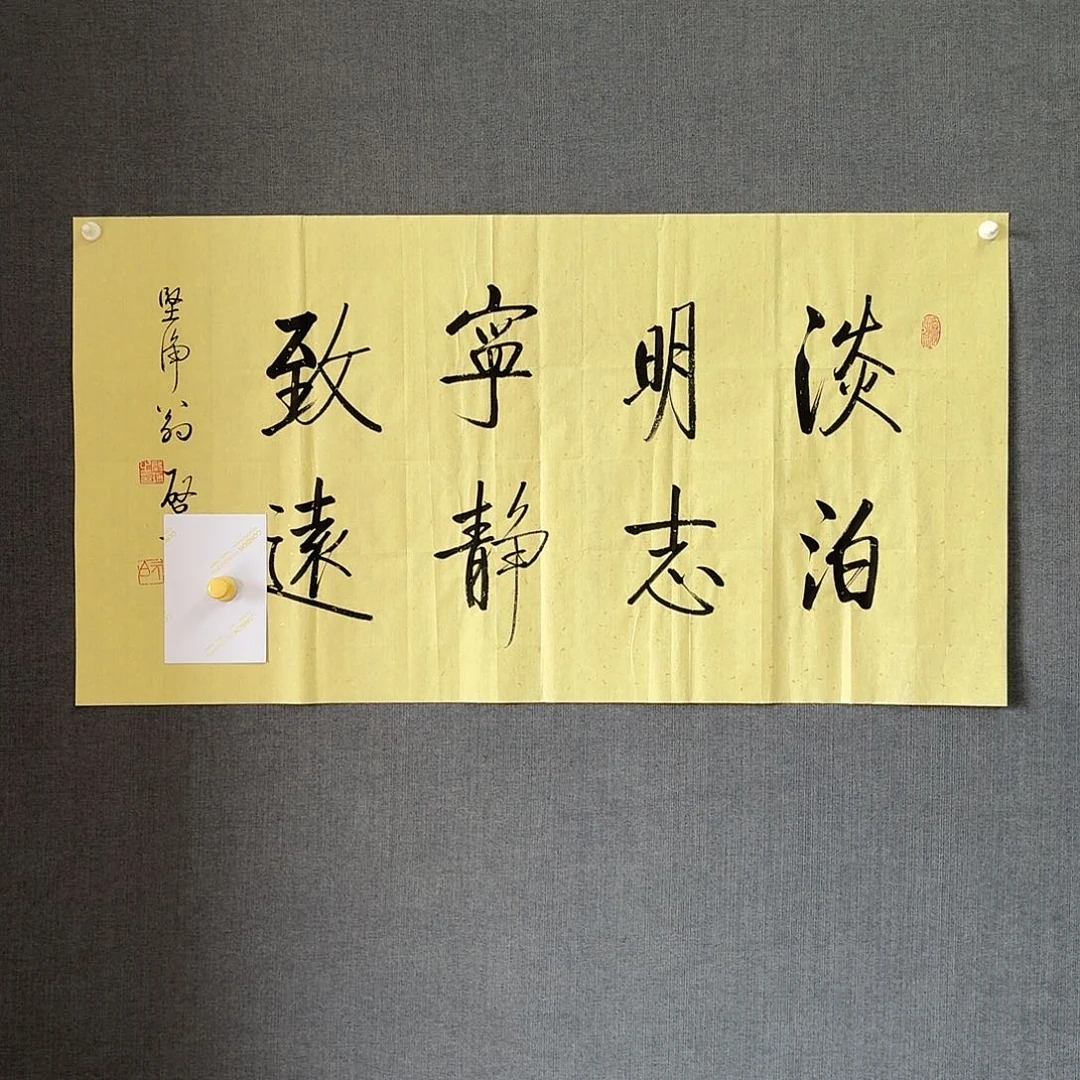 淡泊
明志
寧静
致遠
堅净翁啓